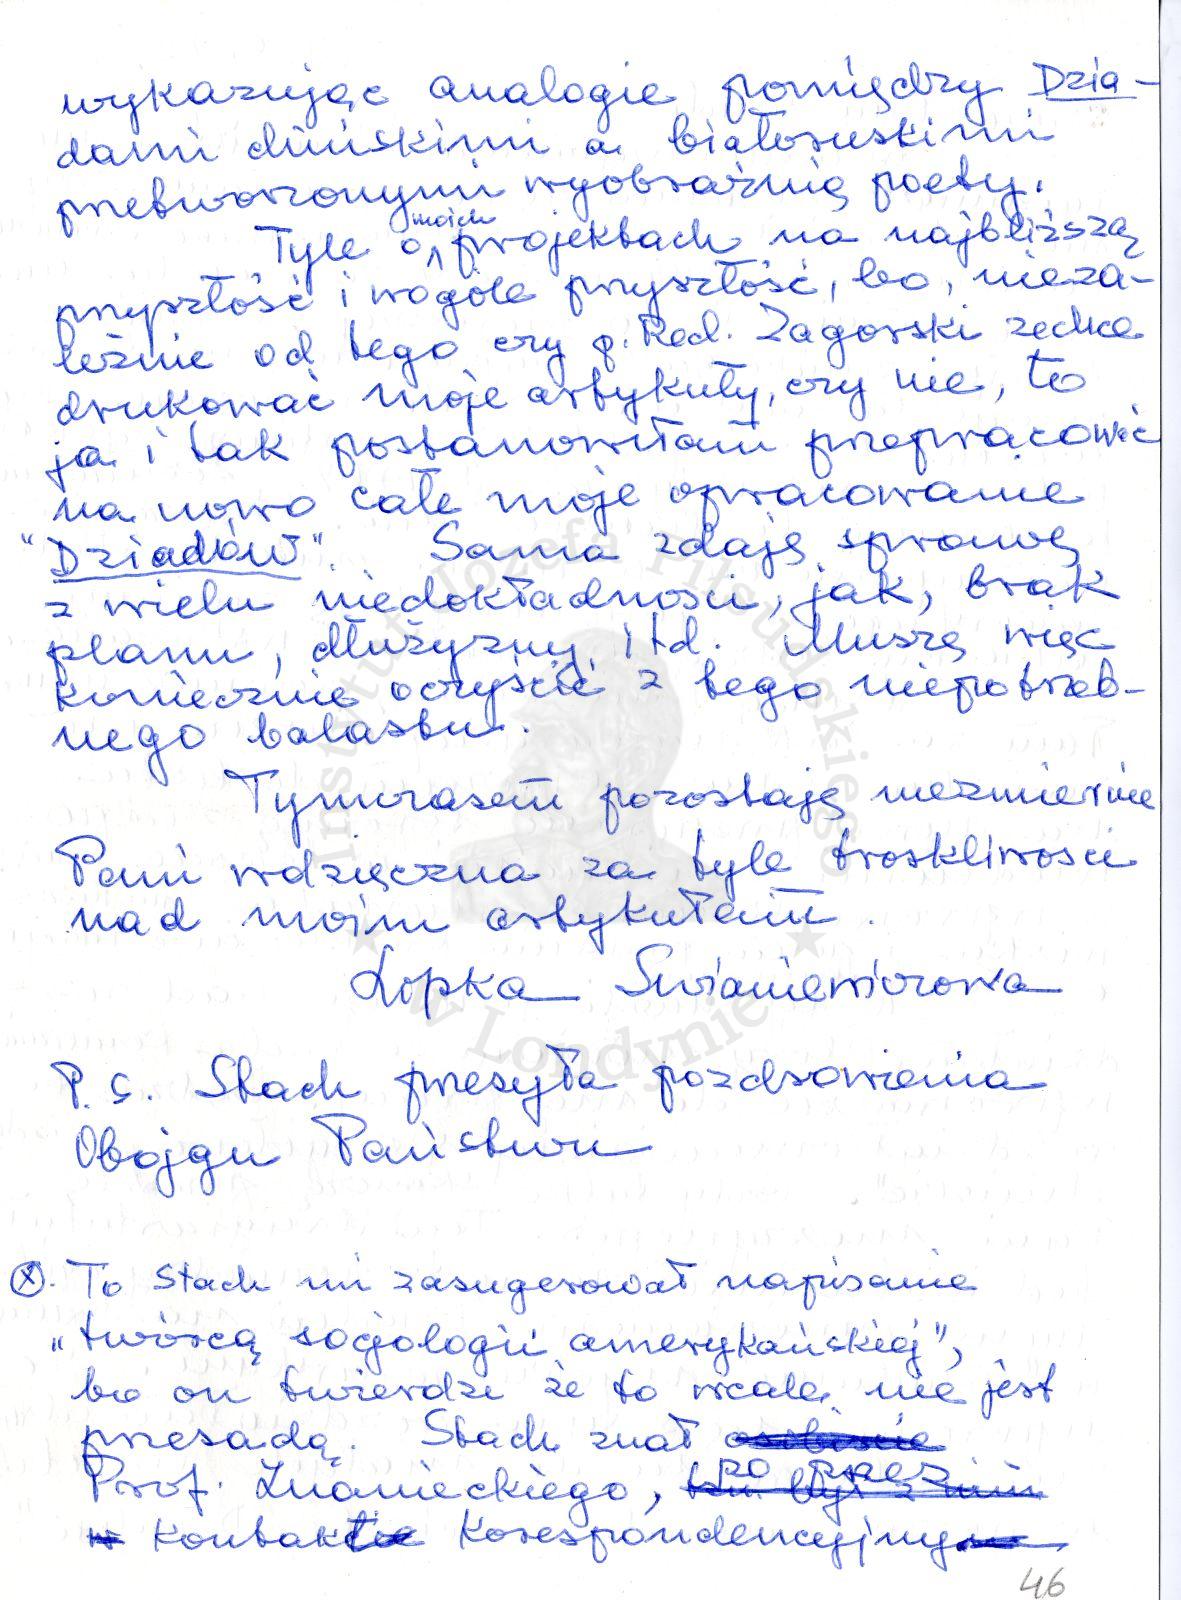 wykazując analogie pomiędzy Dzia-
dami chińskimi a białoruskimi
przetworzonymi wyobraźnią poety.
Tyle o moich projektach na najbliższą
przyszłość i wogóle przyszłość, bo, nieza-
leżnie od tego czy p. Red. Zagorski zechce
drukować moje artykuły, czy nie, to
ja i tak postanowiłam przepracować
na nowo całe moje opracowanie
"Dziadów". Sama zdaję sprawę
z wielu niedokładności, jak, brak
planu, dłużyzny, itd. Muszę więc
koniecznie oczyścić z tego niepotrzeb-
nego balastu.
Tymczasem pozostaję niezmiernie
Pani wdzięczna za tyle troskliwości
nad moim artykułem.
Lopka Swianiewiczowa
P.S. Stach przesyła pozdrowienia
Obojgu Państwu
(X). To Stach mi zasugerował napisanie
„twórcą socjologii amerykańskiej",
bo on twierdzi że to wcale nie jest
przesadą. Stach znał osobiście
Prof. Znanieckiego, po przez
kontakt korespondencyjny
46
Instytut Józefa Piłsudskiego
w Londynie